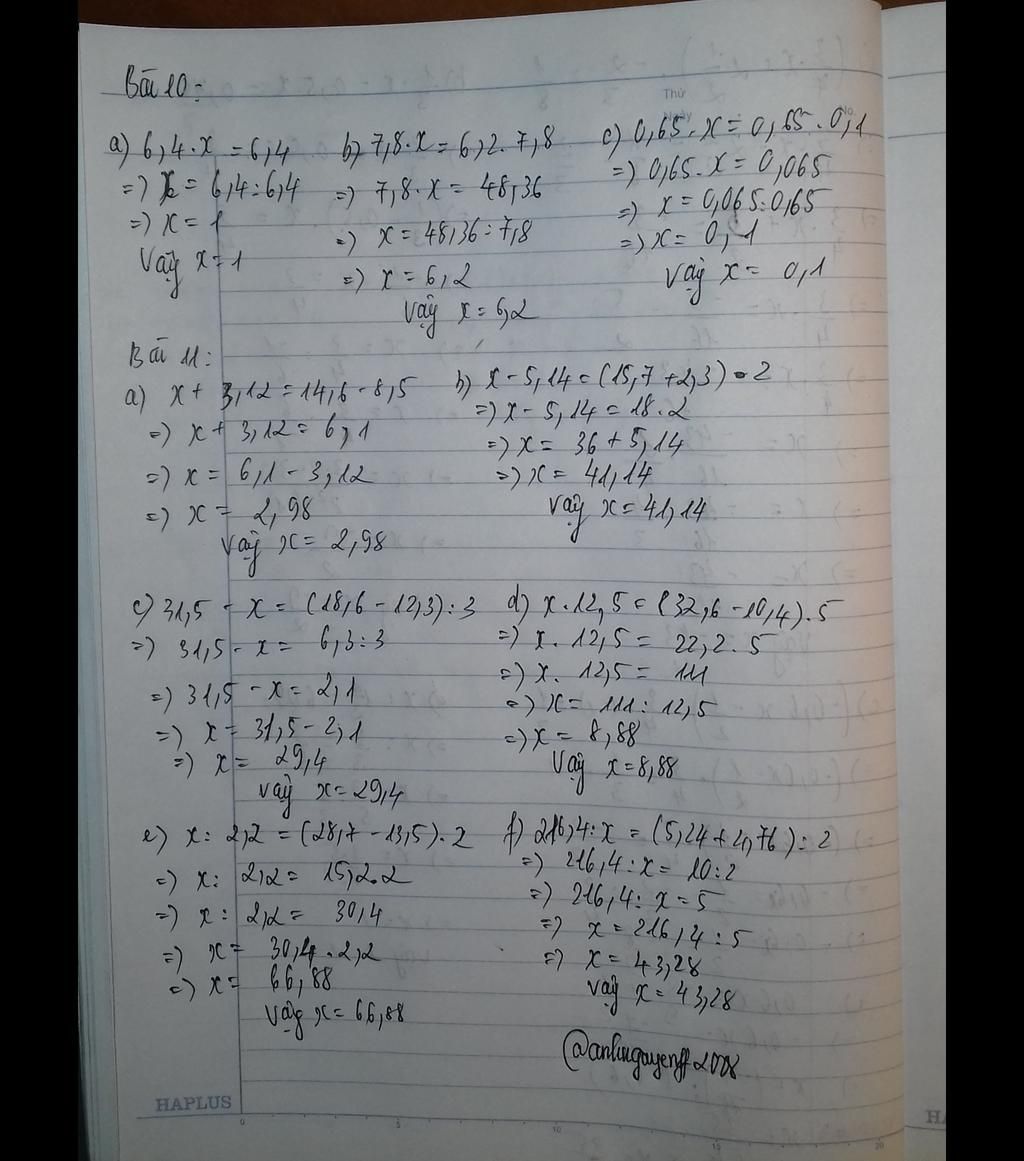 Bài 10:
a) 6,4.x = 6,4
=) x = 6,4:6,4
=) x = 1
Vậy x = 1
b) 7,8.x = 6,2.7,8
=) 7,8.x = 48,36
=) x = 48,36:7,8
=) x = 6,2
Vậy x = 6,2
c) 0,65.x = 0,65.0,1
=) 0,65.x = 0,065
=) x = 0,065:0,65
=) x = 0,1
Vậy x = 0,1
Thứ
Ngày
No
Bài 11:
a) x + 3,12 = 14,6 - 8,5
=) x + 3,12 = 6,1
=) x = 6,1 - 3,12
=) x = 2,98
Vậy x = 2,98
b) x - 5,14 = (15,7 + 2,3).2
=) x - 5,14 = 18.2
=) x = 36 + 5,14
=) x = 41,14
Vậy x = 41,14
c) 31,5 - x = (18,6 - 12,3):3
=) 31,5 - x = 6,3:3
=) 31,5 - x = 2,1
=) x = 31,5 - 2,1
=) x = 29,4
Vậy x = 29,4
d) x.12,5 = (32,6 - 10,4).5
=) x.12,5 = 22,2.5
=) x.12,5 = 111
=) x = 111:12,5
=) x = 8,88
Vậy x = 8,88
e) x:2,2 = (28,7 - 13,5).2
=) x:2,2 = 15,2.2
=) x:2,2 = 30,4
=) x = 30,4.2,2
=) x = 66,88
Vậy x = 66,88
f) 216,4:x = (5,24 + 4,76):2
=) 216,4:x = 10:2
=) 216,4:x = 5
=) x = 216,4:5
=) x = 43,28
Vậy x = 43,28
HAPLUS
0 5 10 15 20